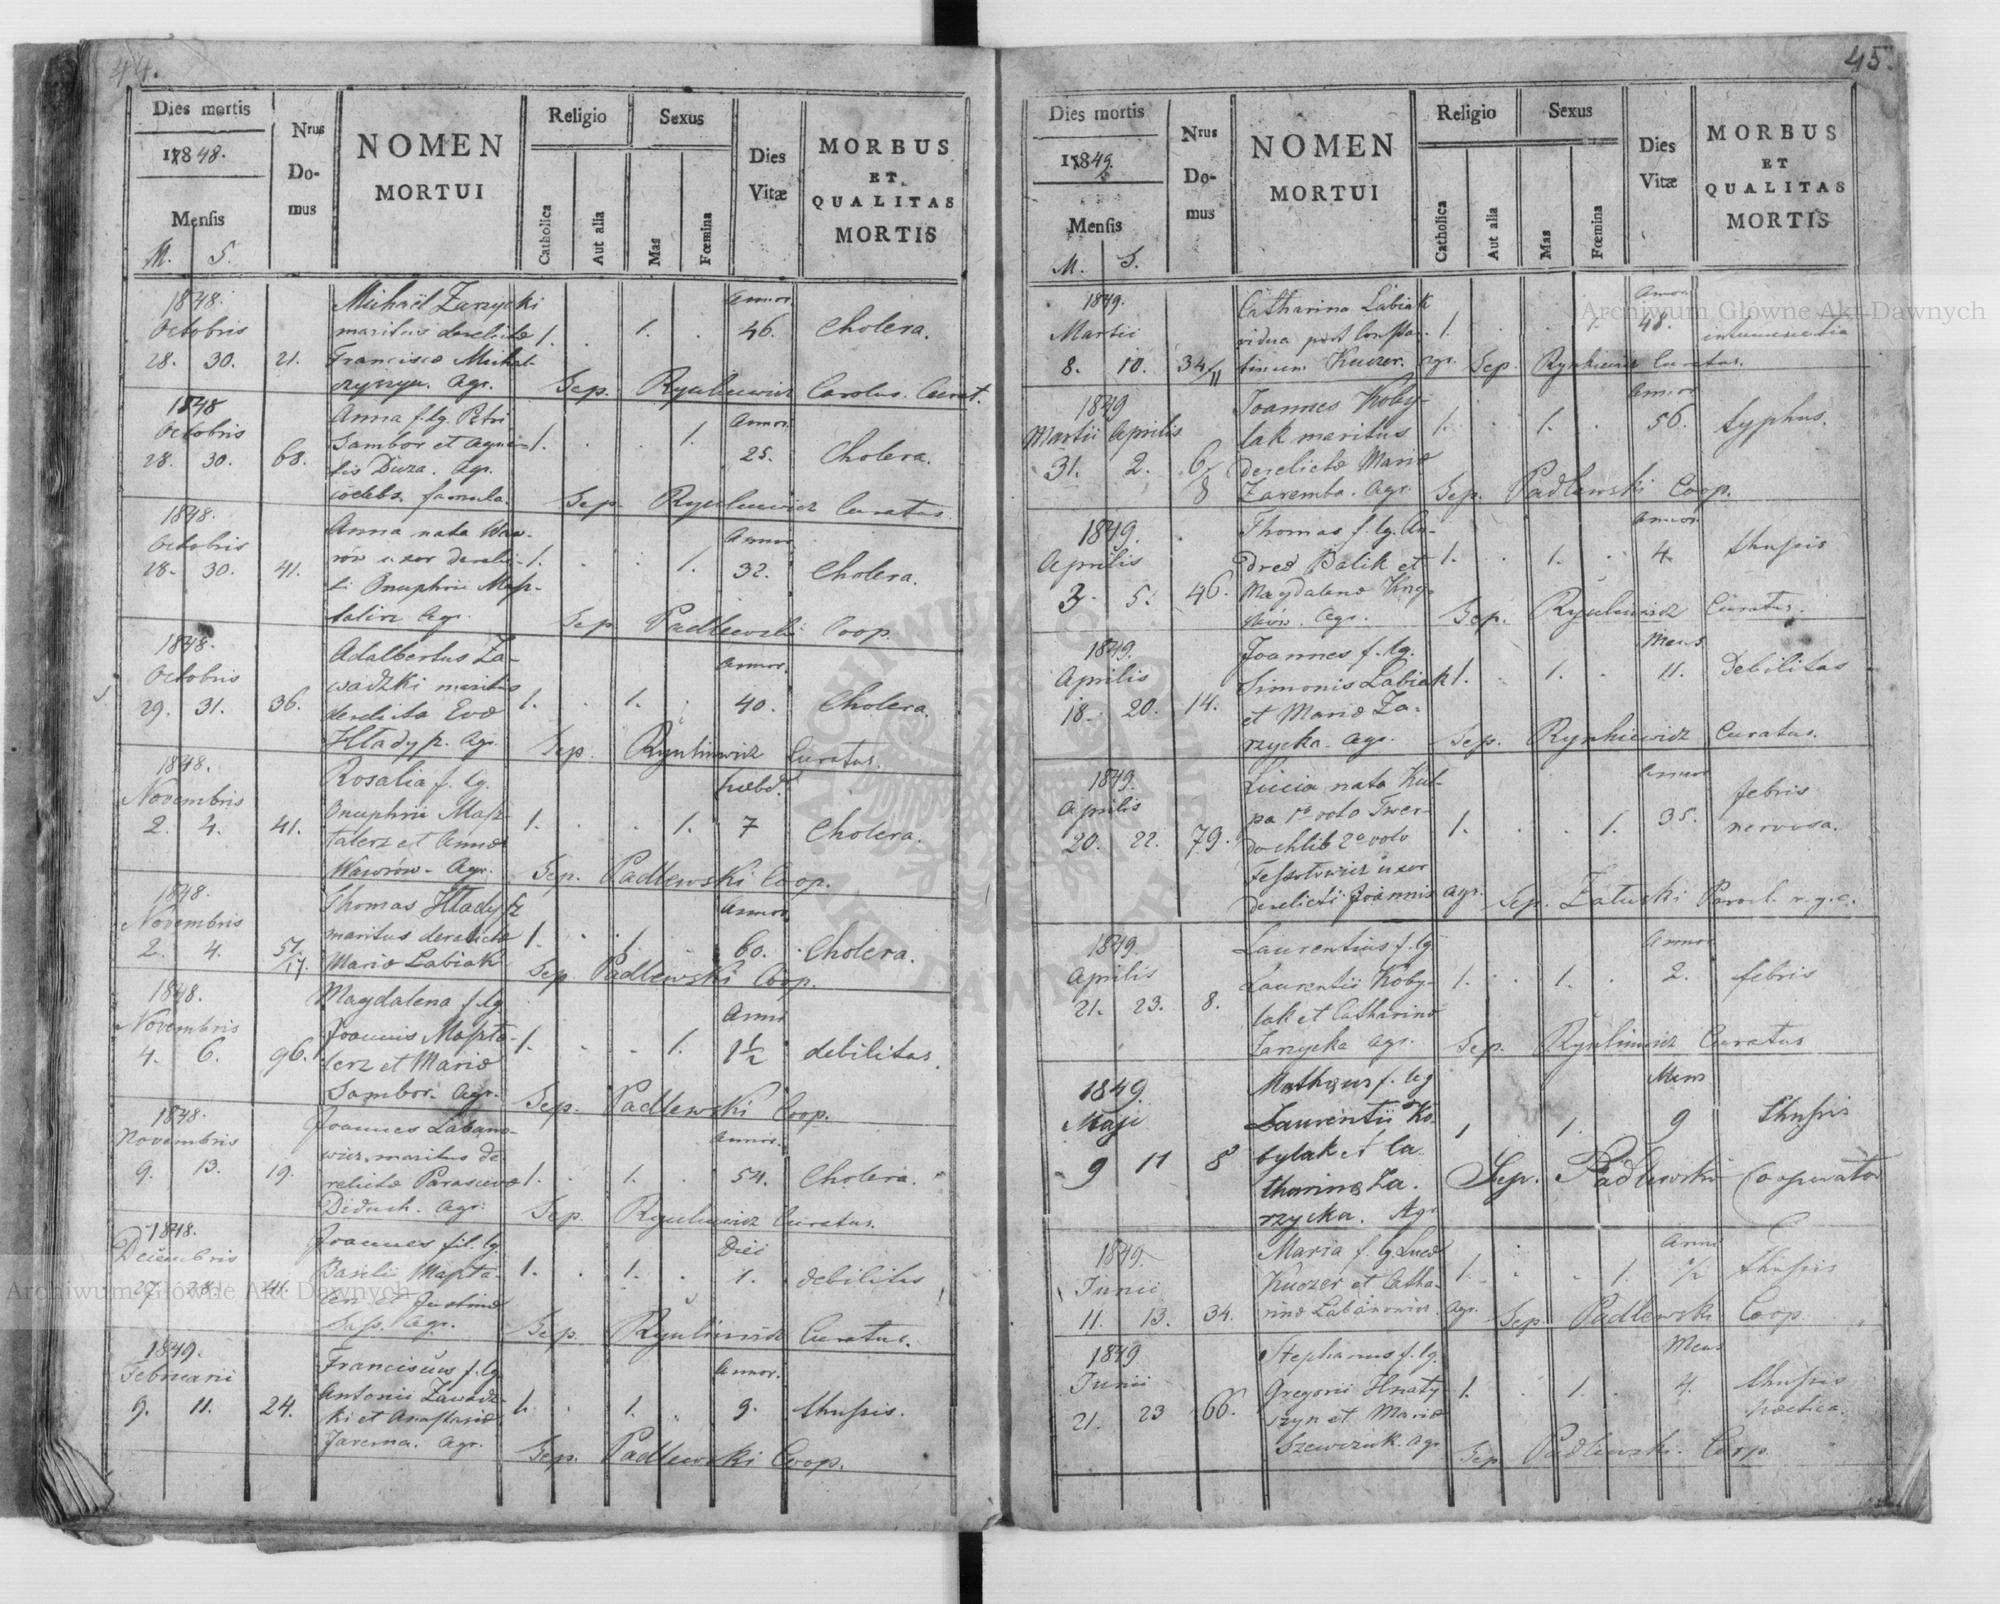 44.
Dies mortis
1848.
Mensis
M. S.
Nrus
Do-
mus
NOMEN
MORTUI
Religio
Catholica
Aut alia
Sexus
Mas
Fœmina
Dies
Vitæ
MORBUS
ET
QUALITAS
MORTIS
1848.
Octobris
28. 30. 21.
Michaël Zarzycki
maritus derelictæ
Francisca Michal-
Agr.
1. 1.
Annor.
46.
Cholera.
Sep. Rynkiewicz Carolus. Curat.
1848
Octobris
28. 30. 68.
Anna f. lg. Petri
Sambor et Agne-
tis Duza. Agr.
coelebs. famula.
1. 1.
Annor.
25.
Cholera.
Sep. Rynkiewicz Curatus.
1848.
Octobris
28. 30. 41.
Anna nata Waw-
rów uxor derelic-
ti Onuphrii Masz-
talirz Agr.
1. 1.
Annor.
32.
Cholera.
Sep. Padlewski Coop.
1848.
Octobris
29. 31. 36.
Adalbertus Za-
wadzki maritus
derelicta Evæ
Hładysz. Agr.
1. 1.
Annor.
40.
Cholera.
Sep. Rynkiewicz Curatus.
1848.
Novembris
2. 4. 41.
Rosalia f. lg.
Onuphrii Masz-
talerz et Annæ
Wawrów. Agr.
1. 1.
hebd.
7
Cholera.
Sep. Padlewski Coop.
1848.
Novembris
2. 4. 57/17.
Thomas Hładysz
maritus derelictæ
Mariæ Łabiak
1. 1.
Annor.
60.
Cholera.
Sep. Padlewski Coop.
1848.
Novembris
4. 6. 96.
Magdalena f. lg.
Joannis Maszta-
lerz et Mariæ
Sambor. Agr.
1. 1.
Anni
1 1/2
debilitas.
Sep. Padlewski Coop.
1848.
Novembris
9. 13. 19.
Joannes Labano-
wicz maritus de-
relictæ Parasceva
Diduch. Agr.
1. 1.
Annor.
54.
Cholera.
Sep. Rynkiewicz Curatus.
1848.
Decembris
27. 28. 41.
Joannes fil. lg.
Basilii Maszta-
lerz et Justinæ
Sass. Agr.
1. 1.
Diei
1.
debilitas
Sep. Rynkiewicz Curatus.
1849.
Februarii
9. 11. 24.
Franciscus f. lg.
Antonii Zawadz-
ki et Anastasiæ
Jarema. Agr.
1. 1.
Annor.
3.
thussis.
Sep. Padlewski Coop.
45.
Dies mortis
1849.
Mensis
M. S.
Nrus
Do-
mus
NOMEN
MORTUI
Religio
Catholica
Aut alia
Sexus
Mas
Fœmina
Dies
Vitæ
MORBUS
ET
QUALITAS
MORTIS
1849.
Martii
8. 10. 34/11
Catharina Labiak
vidua post Constan-
tinum Kuczer. Agr.
1. 1.
Annor
48.
intumescentia
Sep. Rynkiewicz Curatus.
1849
Martii Aprilis
31. 2. 6/8
Joannes Koby-
lak maritus
derelictæ Mariæ
Zaremba. Agr.
1. 1.
Annor
56.
typhus.
Sep. Padlewski Coop.
1849.
Aprilis
3. 5. 46.
Thomas f. lg. An-
dreæ Balik et
Magdalenæ
Agr.
1. 1.
Annor
4.
thussis
Sep. Rynkiewicz Curatus.
1849.
Aprilis
18. 20. 14.
Joannes f. lg.
Simonis Labiak
et Mariæ Za-
rzycka. Agr.
1. 1.
Mens
11.
Debilitas
Sep. Rynkiewicz Curatus.
1849.
Aprilis
20. 22. 79.
Lucia nata Kul-
pa 1º voto Twer-
dochlib 2º voto
uxor
derelicti Joannis Agr.
1. 1.
Annor
35.
febris
nervosa.
Sep. Załuski Paroch. r. g. c.
1849.
Aprilis
21. 23. 8.
Laurentius f. lg.
Laurentii Koby-
lak et Catharinæ
Zarzycka Agr.
1. 1.
Annor
2.
febris
Sep. Rynkiewicz Curatus
1849.
Maji
9 11 8
Mathæus f. leg
Laurentii Ko-
bylak et Ca-
tharinæ Za-
rzycka. Agr
1 1.
Mens
9
thussis
Sep. Padlewski Cooperator
1849.
Junii
11. 13. 34.
Maria f. lg. Lucæ
Kuczer et Catha-
rinæ Labanowicz. Agr.
1. 1.
Anni
1/2
thussis
Sep. Padlewski Coop.
1849
Junii
21. 23 66.
Stephanus f. lg.
Gregorii Hnaty-
szyn et Mariæ
Szewczuk. Agr
1. 1.
Mens
4.
thussis
Sep. Padlewski. Coop.
Archiwum Główne Akt Dawnych
Archiwum Główne Akt Dawnych
ARCHIWUM GŁÓWNE AKT DAWNYCH